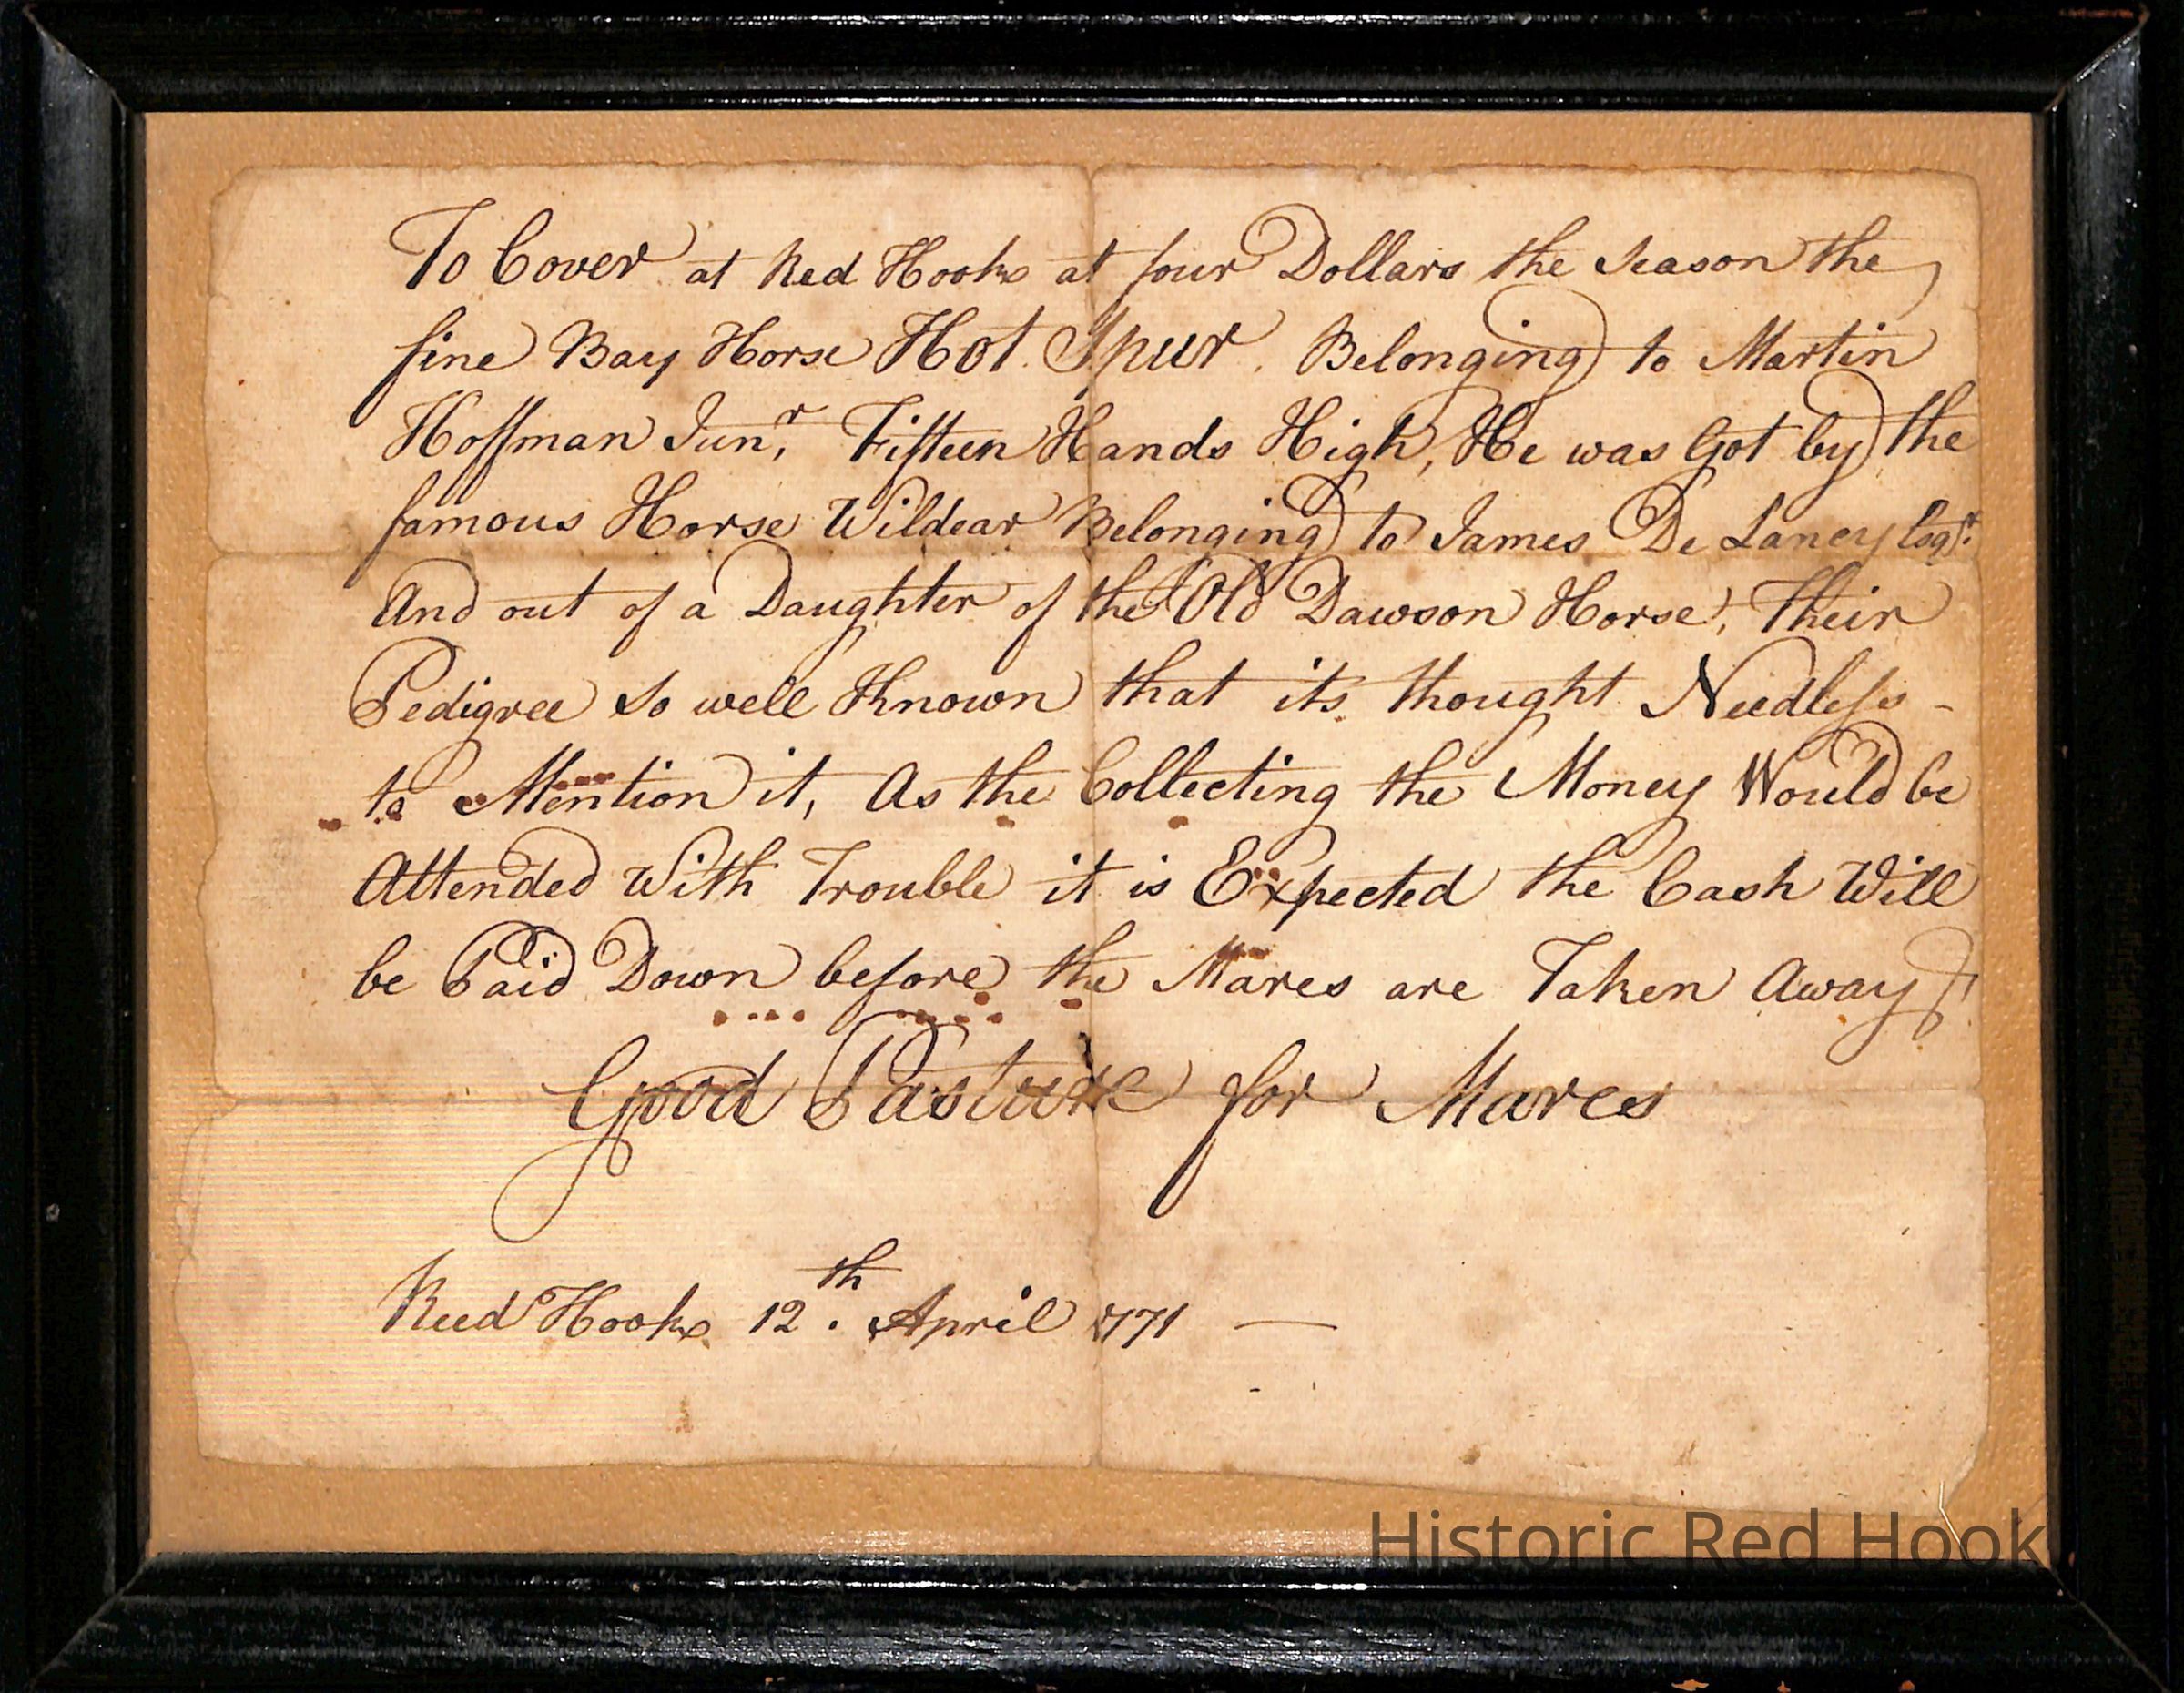 To Cover at Red Hook at four Dollars the Season the
fine Bay Horse Hot Spur. Belonging to Martin
Hoffman Junr, Fifteen Hands High, He was Got by the
famous Horse Wildear Belonging to James De Lancy Esqr.
And out of a Daughter of the Old Dawson Horse, Their
Pedigree So well Known that its thought Needless -
to Mention it, As the Collecting the Money Would be
Attended With Trouble it is Expected the Cash Will
be Paid Down before the Mares are Taken Away
Good Pasture for Mares
Reed Hook 12th. April 1771 —
Historic Red Hook